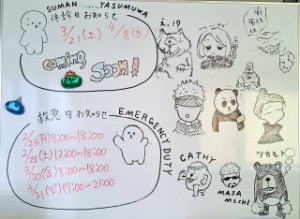 SUMAN......YASUMUWA
休診日お知らせ
3/21(土) 4/8(水)
coming Soon!
え、!?
救急日お知らせ EMERGENCY DUTY
2/23(月)8:00〜18:00
2/28(土)12:00〜18:00
3/20(金)8:00〜18:00
3/31(火)17:00〜21:00
CATHY
MASA
MICHI
ツカモト